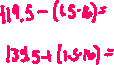 119.5-(1.5·16)=
139.5+(1.5·16)=